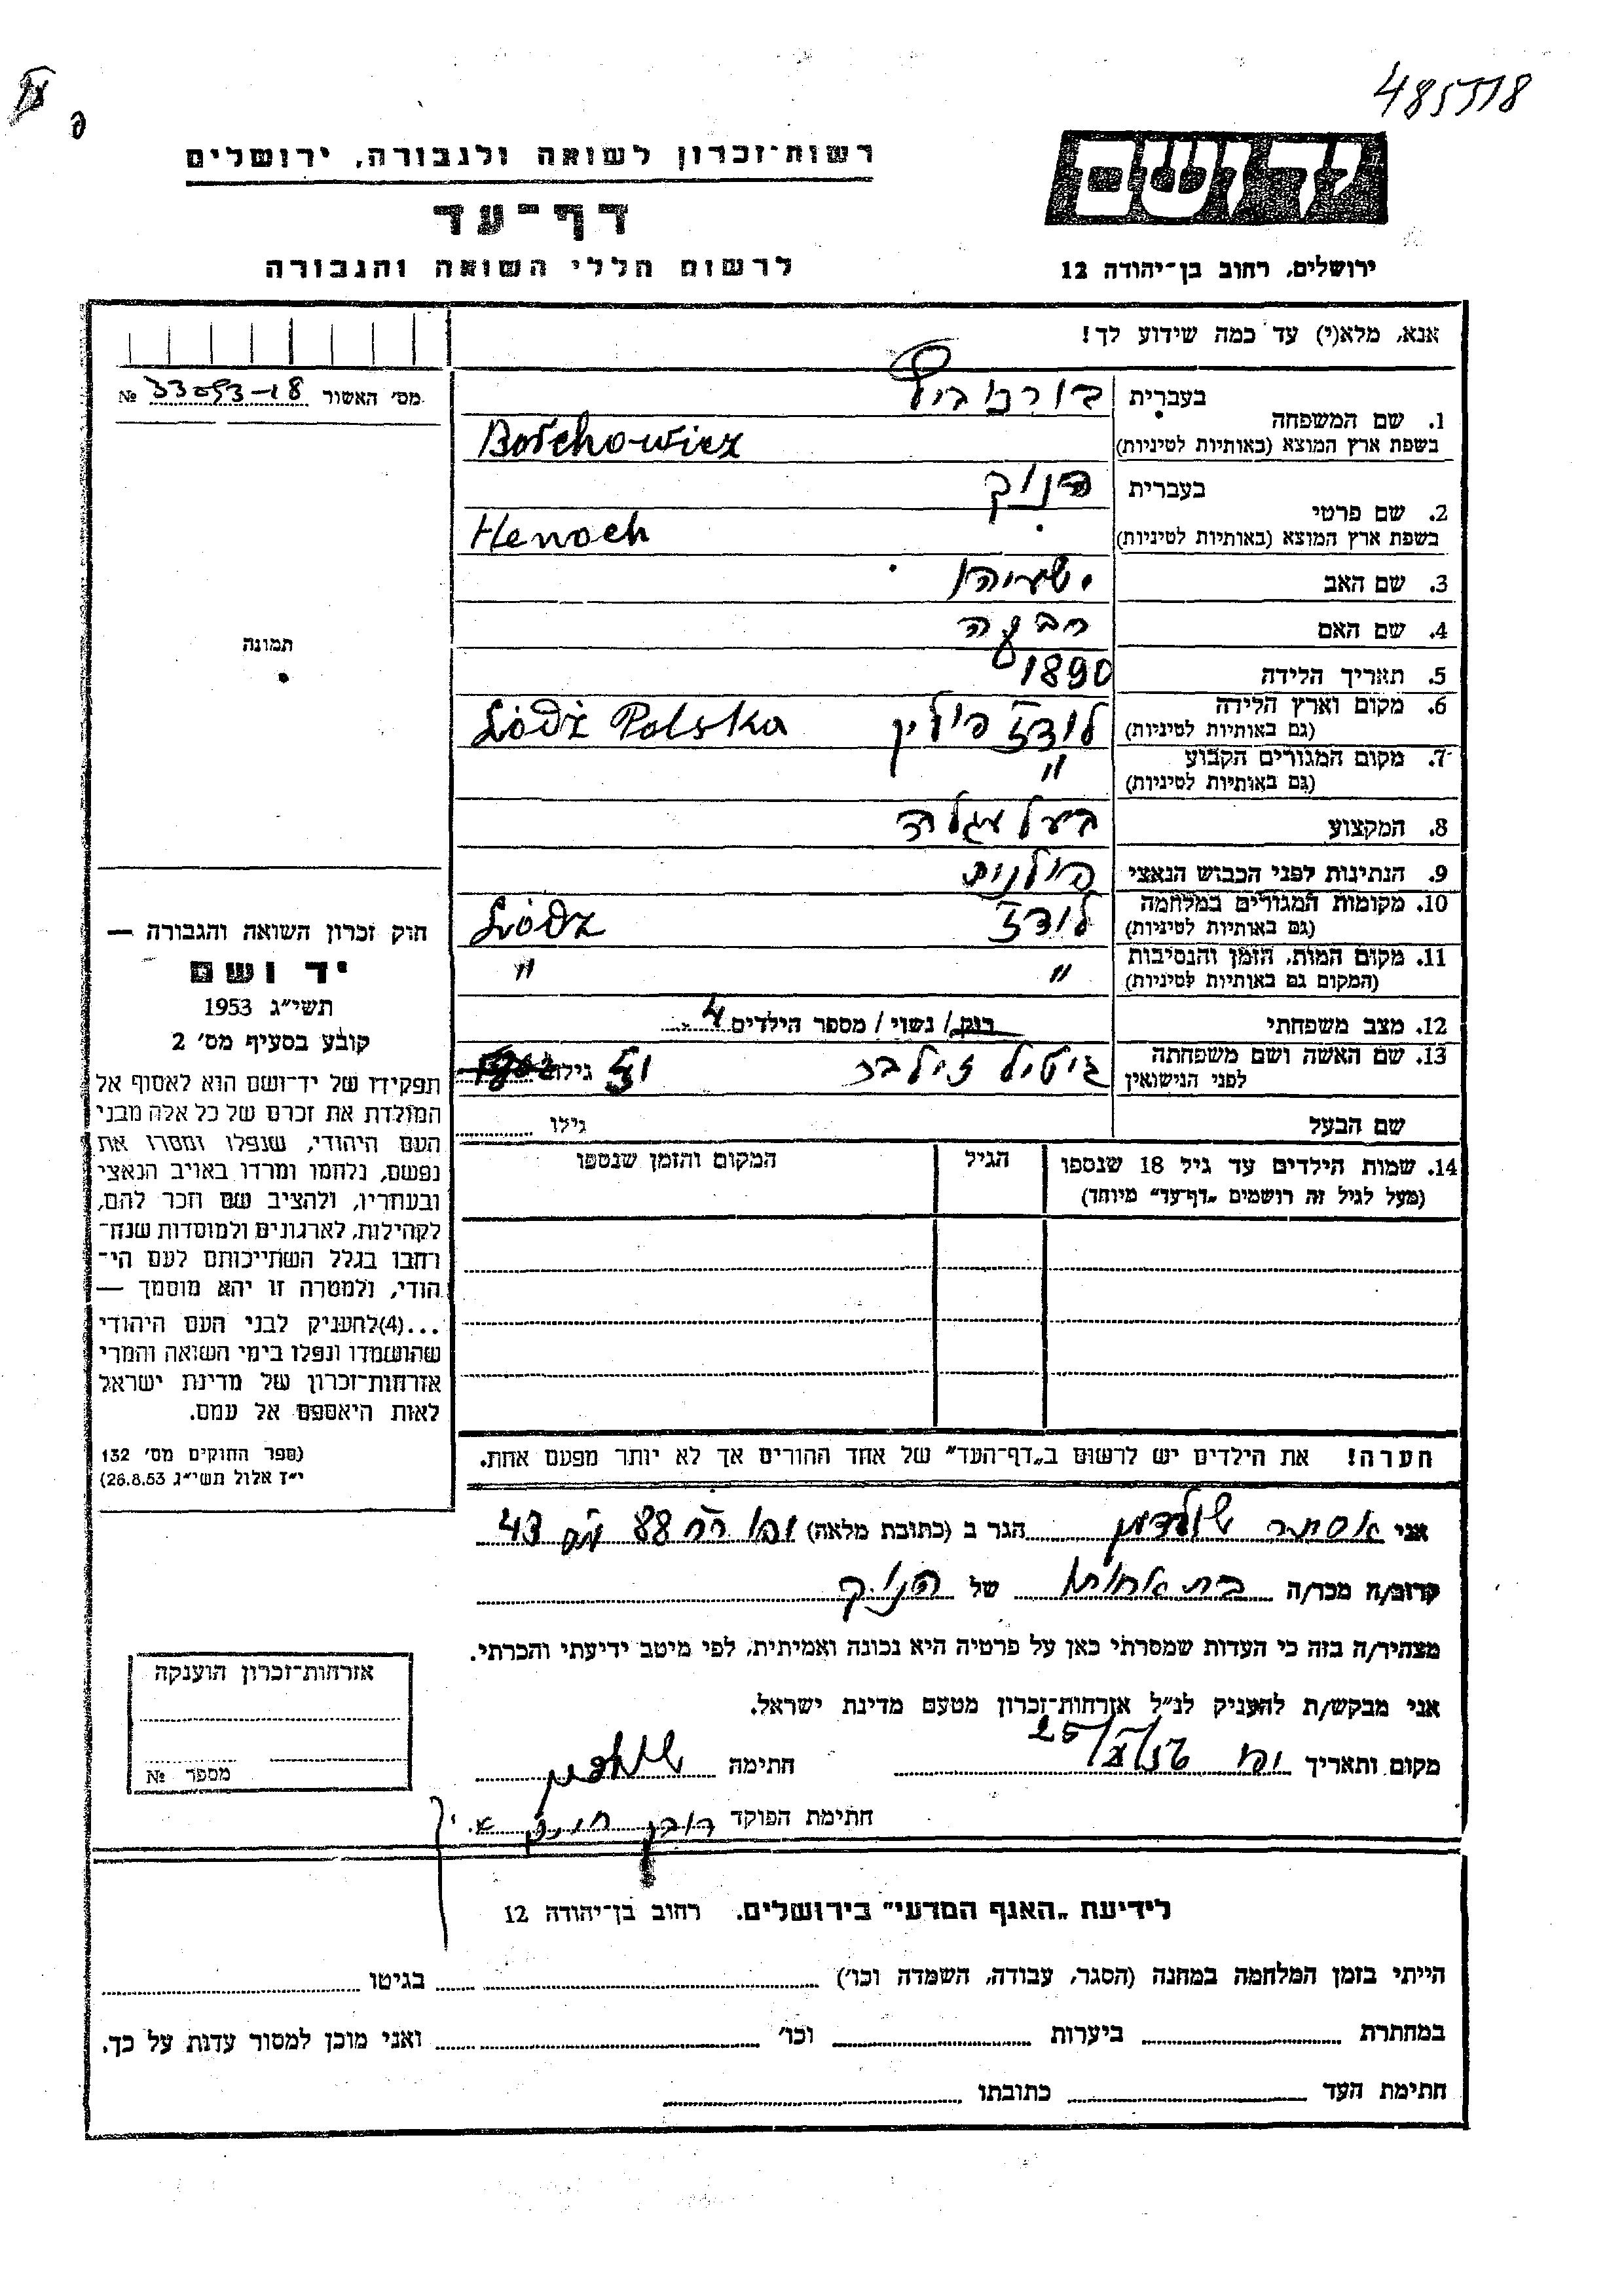 485518
רשות־זכרון לשואה ולגבורה, ירושלים
יד ושם
דף־עד
לרשום חללי השואה והגבורה
ירושלים, רחוב בן־יהודה 12
אנא, מלא(י) עד כמה שידוע לך!
מס׳ האשור 33093-18 №
1. שם המשפחה
בעברית בורכוביץ
בשפת ארץ המוצא (באותיות לטיניות) Borchowicz
2. שם פרטי
בעברית הנוך
בשפת ארץ המוצא (באותיות לטיניות) Henoch
3. שם האב ישעיהו
4. שם האם
5. תאריך הלידה 1890
6. מקום וארץ הלידה לודז פולין Łódź Polska
(גם באותיות לטיניות)
7. מקום המגורים הקבוע "
(גם באותיות לטיניות)
8. המקצוע בעל עגלה
9. הנתינות לפני הכבוש הנאצי פולנית
10. מקומות המגורים במלחמה לודז Łódz
(גם באותיות לטיניות)
11. מקום המות, הזמן והנסיבות " "
(המקום גם באותיות לטיניות)
12. מצב משפחתי רווק / נשוי / מספר הילדים 4
13. שם האשה ושם משפחתה גיטל זילבר גילה
לפני הנישואין
שם הבעל גילו
14. שמות הילדים עד גיל 18 שנספו הגיל המקום והזמן שנספו
(מעל לגיל זה רושמים „דף־עד״ מיוחד)
הערה! את הילדים יש לרשום ב„דף־העד״ של אחד ההורים אך לא יותר מפעם אחת.
תמונה
חוק זכרון השואה והגבורה —
יד ושם
תשי״ג 1953
קובע בסעיף מס׳ 2
תפקידו של יד־ושם הוא לאסוף אל
המולדת את זכרם של כל אלה מבני
העם היהודי, שנפלו ומסרו את
נפשם, נלחמו ומרדו באויב הנאצי
ובעוזריו, ולהציב שם וזכר להם,
לקהילות, לארגונים ולמוסדות שנח־
רחבו בגלל השתייכותם לעם הי־
הודי, ולמטרה זו יהא מוסמך —
...(4)להעניק לבני העם היהודי
שהושמדו ונפלו בימי השואה והמרי
אזרחות־זכרון של מדינת ישראל
לאות היאספם אל עמם.
(ספר החוקים מס׳ 132
י״ז אלול תשי״ג 26.8.53)
אני אסתר הגר ב (כתובת מלאה) 88 43
קרוב/ה מכר/ה בת אחותו של הנוך
מצהיר/ה בזה כי העדות שמסרתי כאן על פרטיה היא נכונה ואמיתית, לפי מיטב ידיעתי והכרתי.
אני מבקש/ת להעניק לנ״ל אזרחות־זכרון מטעם מדינת ישראל.
מקום ותאריך חתימה
חתימת הפוקד
אזרחות־זכרון הוענקה
מספר №
לידיעת „האגף המדעי״ בירושלים. רחוב בן־יהודה 12
הייתי בזמן המלחמה במחנה (הסגר, עבודה, השמדה וכו׳) בגיטו
במחתרת ביערות וכו׳ ואני מוכן למסור עדות על כך.
חתימת העד כתובתו